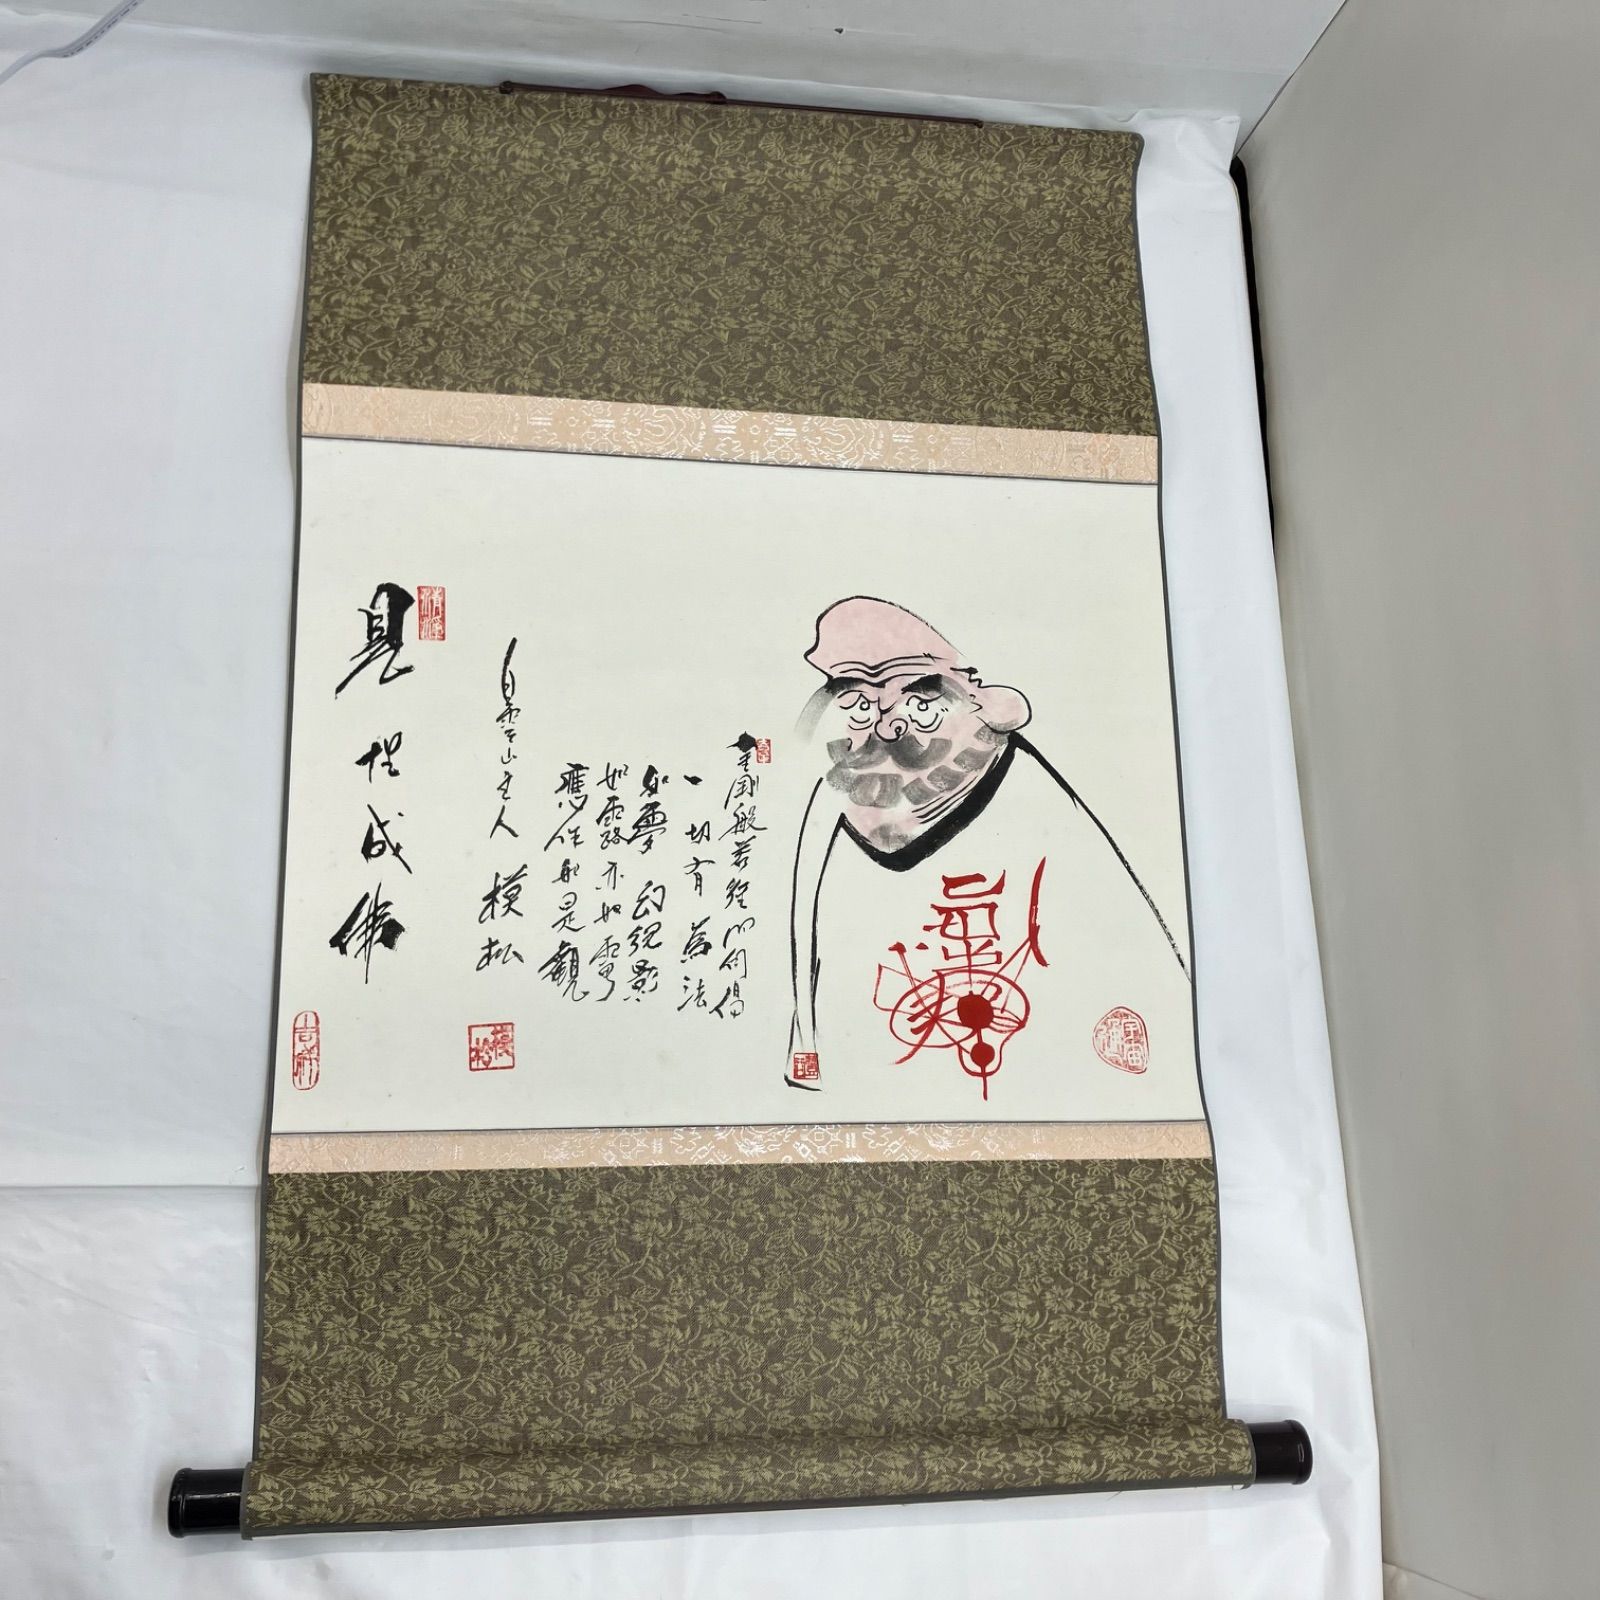 金剛般若經四句偈
一切有為法
如夢幻泡影
如露亦如電
應作如是觀
白雲山主人 模松
模松
清淨
見性成佛
吉祥